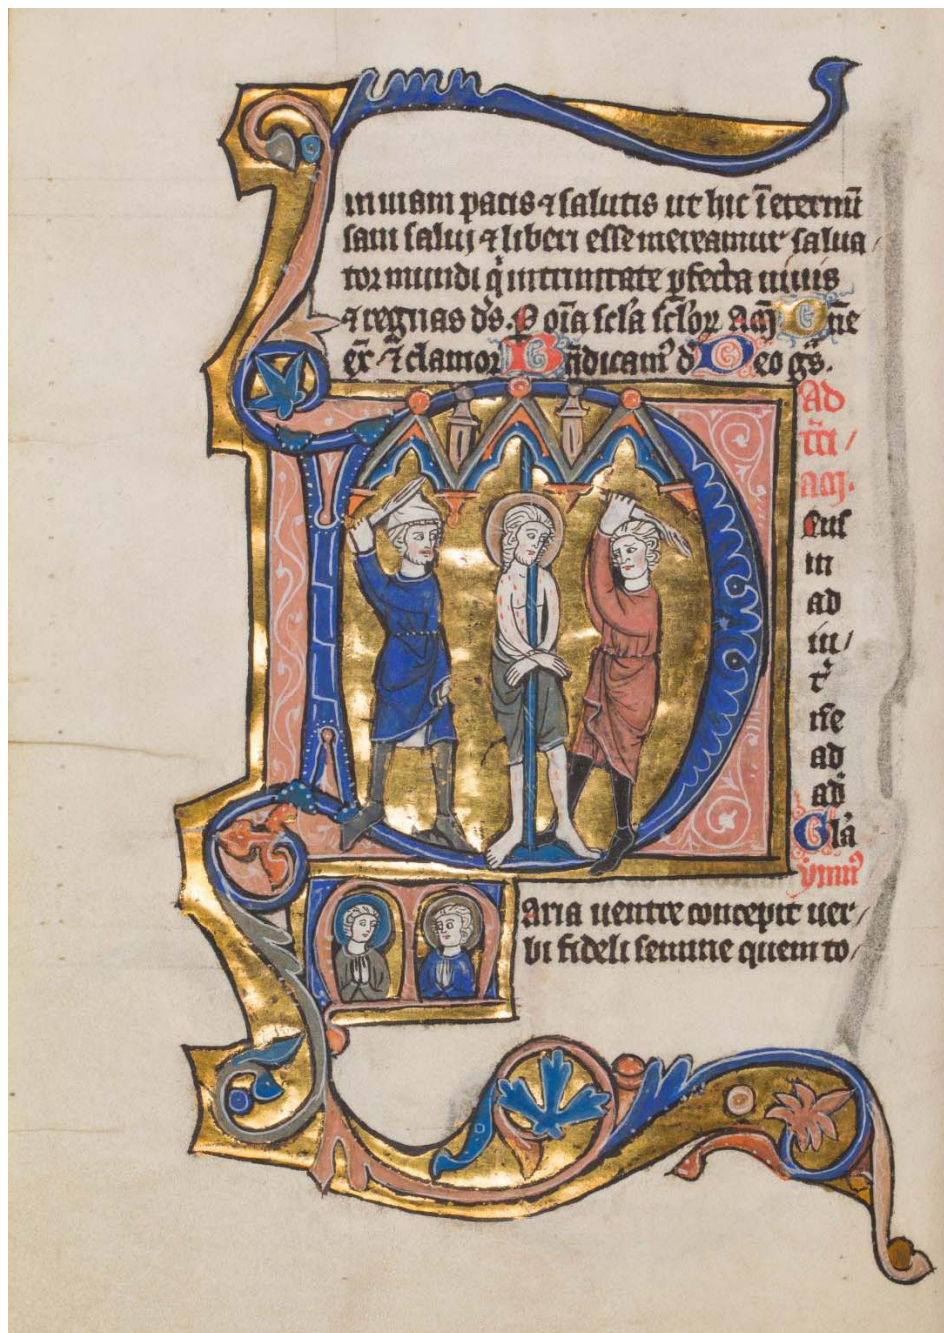 in uiam pacis ⁊ salutis ut hic ī eternū
sani saluj ⁊ liberi esse mereamur salua/
tor mundi q̇ in trinitate ꝑfecta uiuis
⁊ regnas d̄s. P oīa scl̄a scl̄oꝝ Am̄ Dn̄e
ex̄ ⁊ clamor Bn̄dicam᷒ d Deo gr̄s.
Ad
/
eus
in
ad
iu/
t᷒
ne
ad
ad
Gl̄a
ymn᷒
Aria uentre concepit uer/
bi fideli semine quem to/